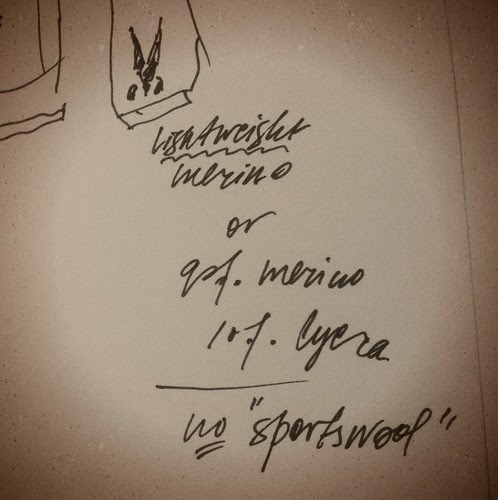 lightweight
merino
or
90%. merino
10%. lycra
no "sportswool"